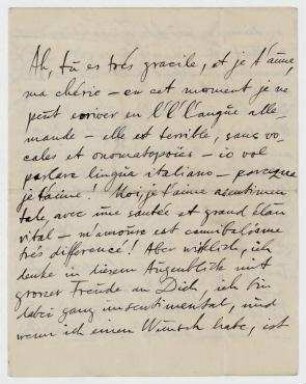 Ah, tu es trés gracile, et je t'aime,
ma chérie – en cet moment je ne
peut ecriver en l'l'langue alle-
mande – elle et terrible, sans vo-
cales et onomatopoïes – io vol
parlare lingua italiano –
je t'aime! Moi, je t'aime asentimen-
tale, avec une santée et grand élan
vital – m'amoure est cannibalisme
trés differencé! Aber wirklich, ich
denke in diesem Augenblick mit
grosser Freude an Dich, ich bin
dabei ganz unsentimental, und
wenn ich einen Wunsch habe, ist